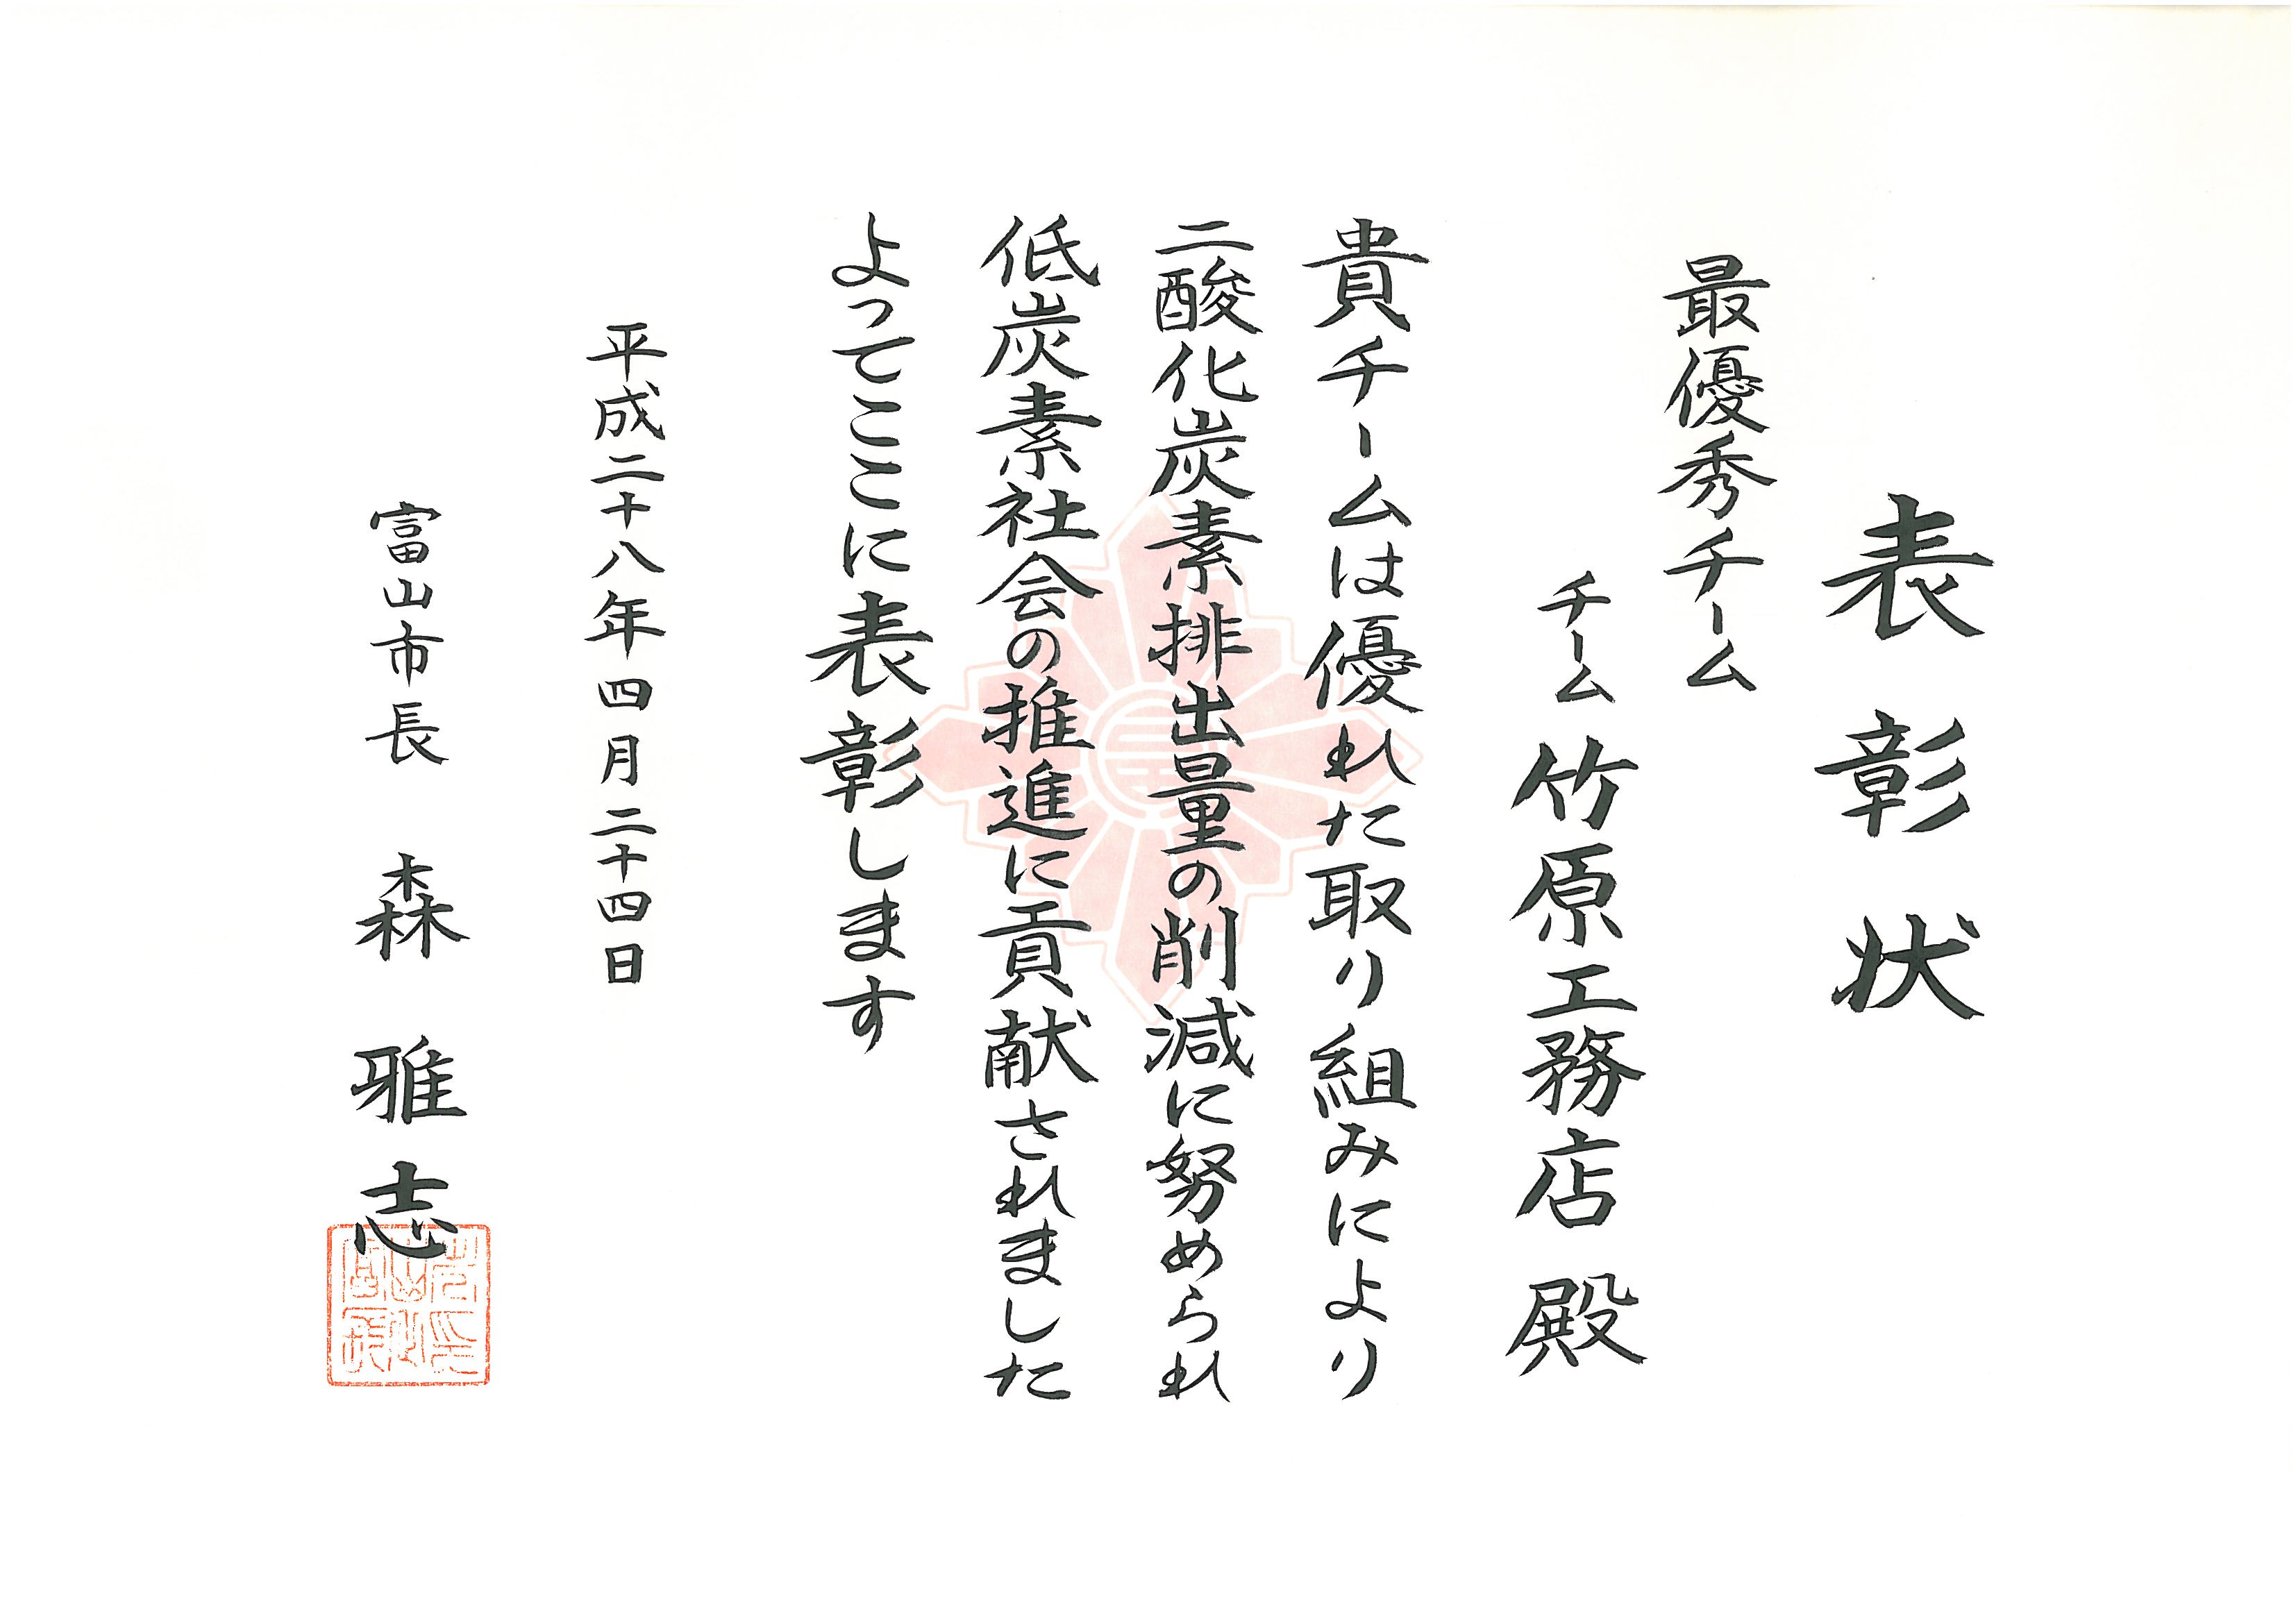 表彰状
最優秀チーム
チーム竹原工務店 殿
貴チームは優れた取り組みにより
二酸化炭素排出量の削減に努められ
低炭素社会の推進に貢献されました
よってここに表彰します
平成二十八年四月二十四日
富山市長 森 雅志